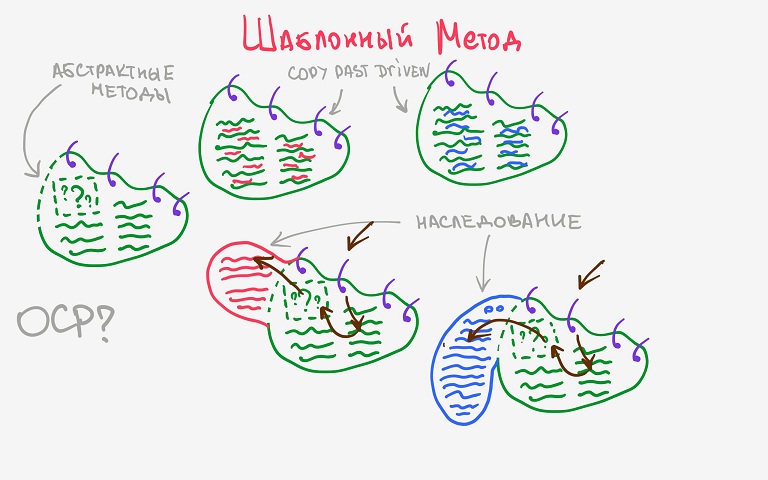 Шаблонный Метод
АБСТРАКТНЫЕ
МЕТОДЫ
COPY PAST DRIVEN
???
НАСЛЕДОВАНИЕ
???
OCP?
???